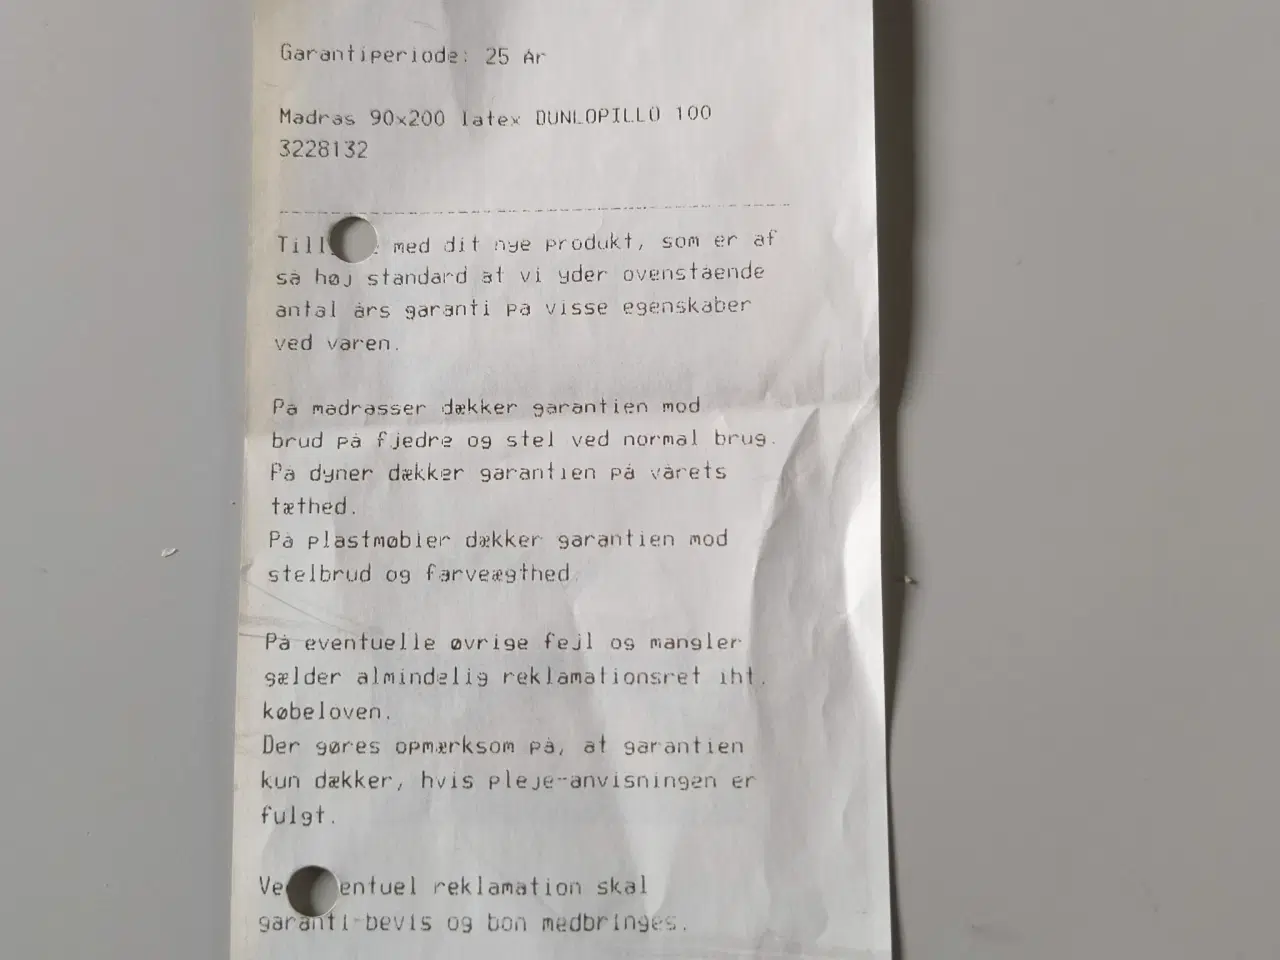 Garantiperiode: 25 År
Madras 90x200 latex DUNLOPILLO 100
3228132
med dit nye produkt, som er af
så høj standard at vi yder ovenstående
antal års garanti på visse egenskaber
ved varen.
På madrasser dækker garantien mod
brud på fjedre og stel ved normal brug.
På dyner dækker garantien på vårets
tæthed.
På plastmøbler dækker garantien mod
stelbrud og farveægthed.
På eventuelle øvrige fejl og mangler
gælder almindelig reklamationsret iht.
købeloven.
Der gøres opmærksom på, at garantien
kun dækker, hvis pleje-anvisningen er
fulgt.
reklamation skal
garanti-bevis og bon medbringes.